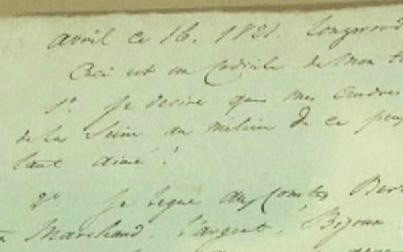 avril ce 16. 1821. Longwood
Ceci est un Codicile de mon
1º. Je desire que mes Cendres
de la Seine au milieu de ce peup
tant aimé!
2º Je legue aux Comtes Bert
Marchand, l'argent, Bijoux